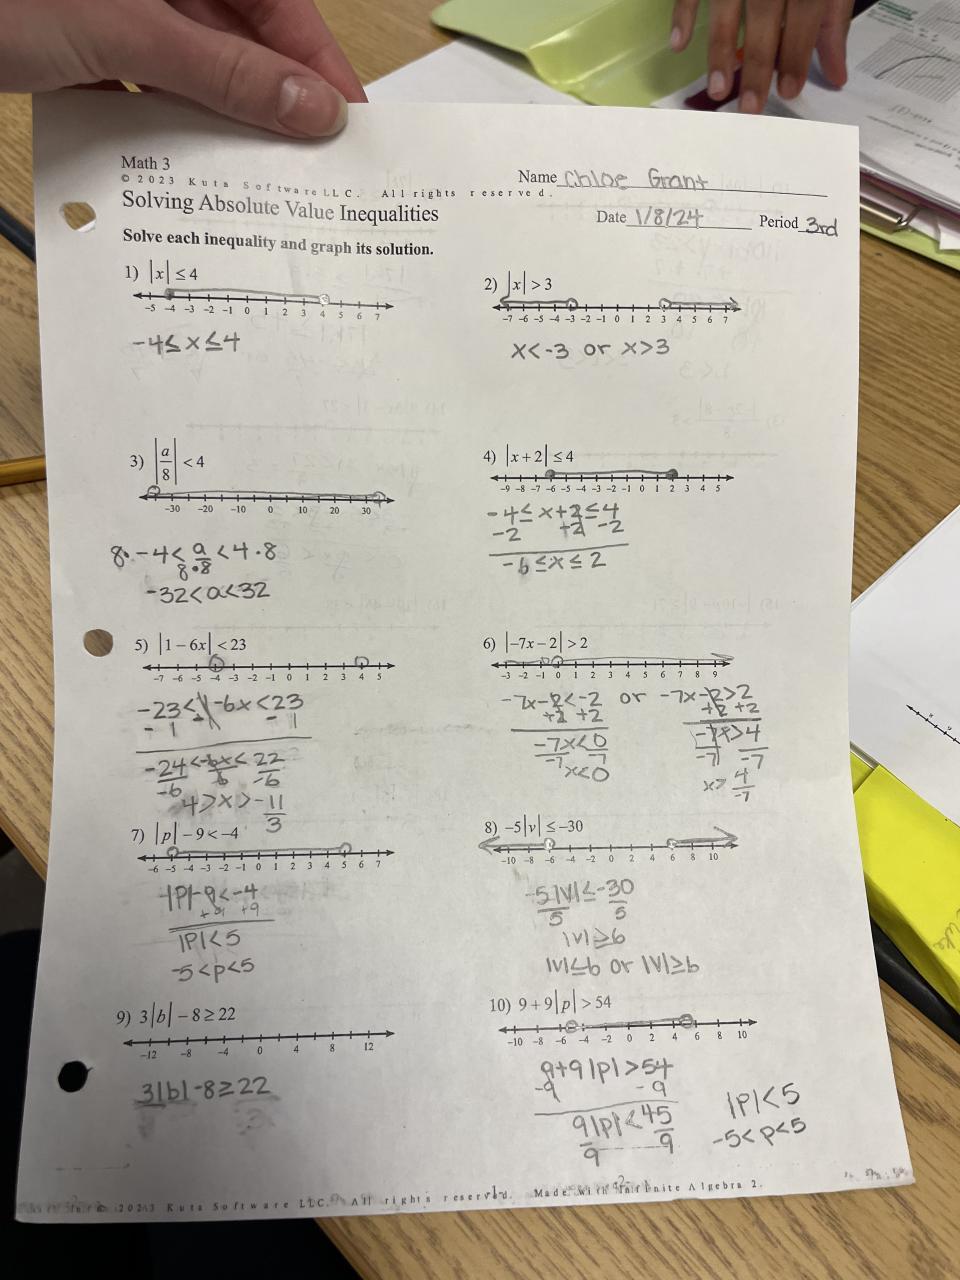 Math 3
© 2023 Kuta Software LLC. All rights reserved.
Name Chloe Grant
Solving Absolute Value Inequalities
Date 1/8/24 Period 3rd
Solve each inequality and graph its solution.
1) |x| ≤ 4
-5 -4 -3 -2 -1 0 1 2 3 4 5 6 7
-4 ≤ x ≤ 4
2) |x| > 3
-7 -6 -5 -4 -3 -2 -1 0 1 2 3 4 5 6 7
x < -3 or x > 3
3) |a/8| < 4
-30 -20 -10 0 10 20 30
8·-4 < a/8·8 < 4·8
-32 < a < 32
4) |x + 2| ≤ 4
-9 -8 -7 -6 -5 -4 -3 -2 -1 0 1 2 3 4 5
-4 ≤ x+2 ≤ 4
-2 +2 -2
-6 ≤ x ≤ 2
5) |1 - 6x| < 23
-7 -6 -5 -4 -3 -2 -1 0 1 2 3 4 5
-23 < 1-6x < 23
-1 -1 -1
-24/-6 < -6x/6 < 22/-6
4 > x > -11/3
6) |-7x - 2| > 2
-3 -2 -1 0 1 2 3 4 5 6 7 8 9
-7x-2 < -2 or -7x-2 > 2
+2 +2 +2 +2
-7x/-7 < 0/-7 -7x/-7 > 4/-7
x < 0 x > 4/-7
7) |p| - 9 < -4
-6 -5 -4 -3 -2 -1 0 1 2 3 4 5 6 7
|P|-9 < -4
+9 +9
|P| < 5
-5 < p < 5
8) -5|v| ≤ -30
-10 -8 -6 -4 -2 0 2 4 6 8 10
-5|v|/5 ≤ -30/5
|v| ≥ 6
|v| ≤ 6 or |v| ≥ 6
9) 3|b| - 8 ≥ 22
-12 -8 -4 0 4 8 12
3|b|-8 ≥ 22
10) 9 + 9|p| > 54
-10 -8 -6 -4 -2 0 2 4 6 8 10
9+9|p| > 54
-9 -9
9|p|/9 < 45/9
|P| < 5
-5 < p < 5
2023 Kuta Software LLC. All rights reserved. Made with Infinite Algebra 2.